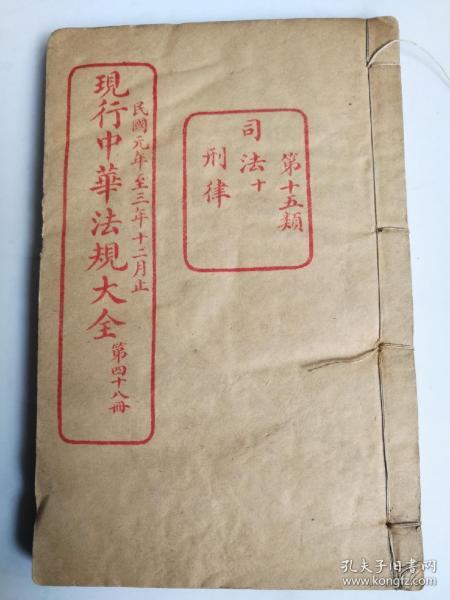 第十五類
司法十
刑律
民國元年至三年十二月止
現行中華法規大全
第四十八冊
孔夫子旧书网
www.kongfz.com